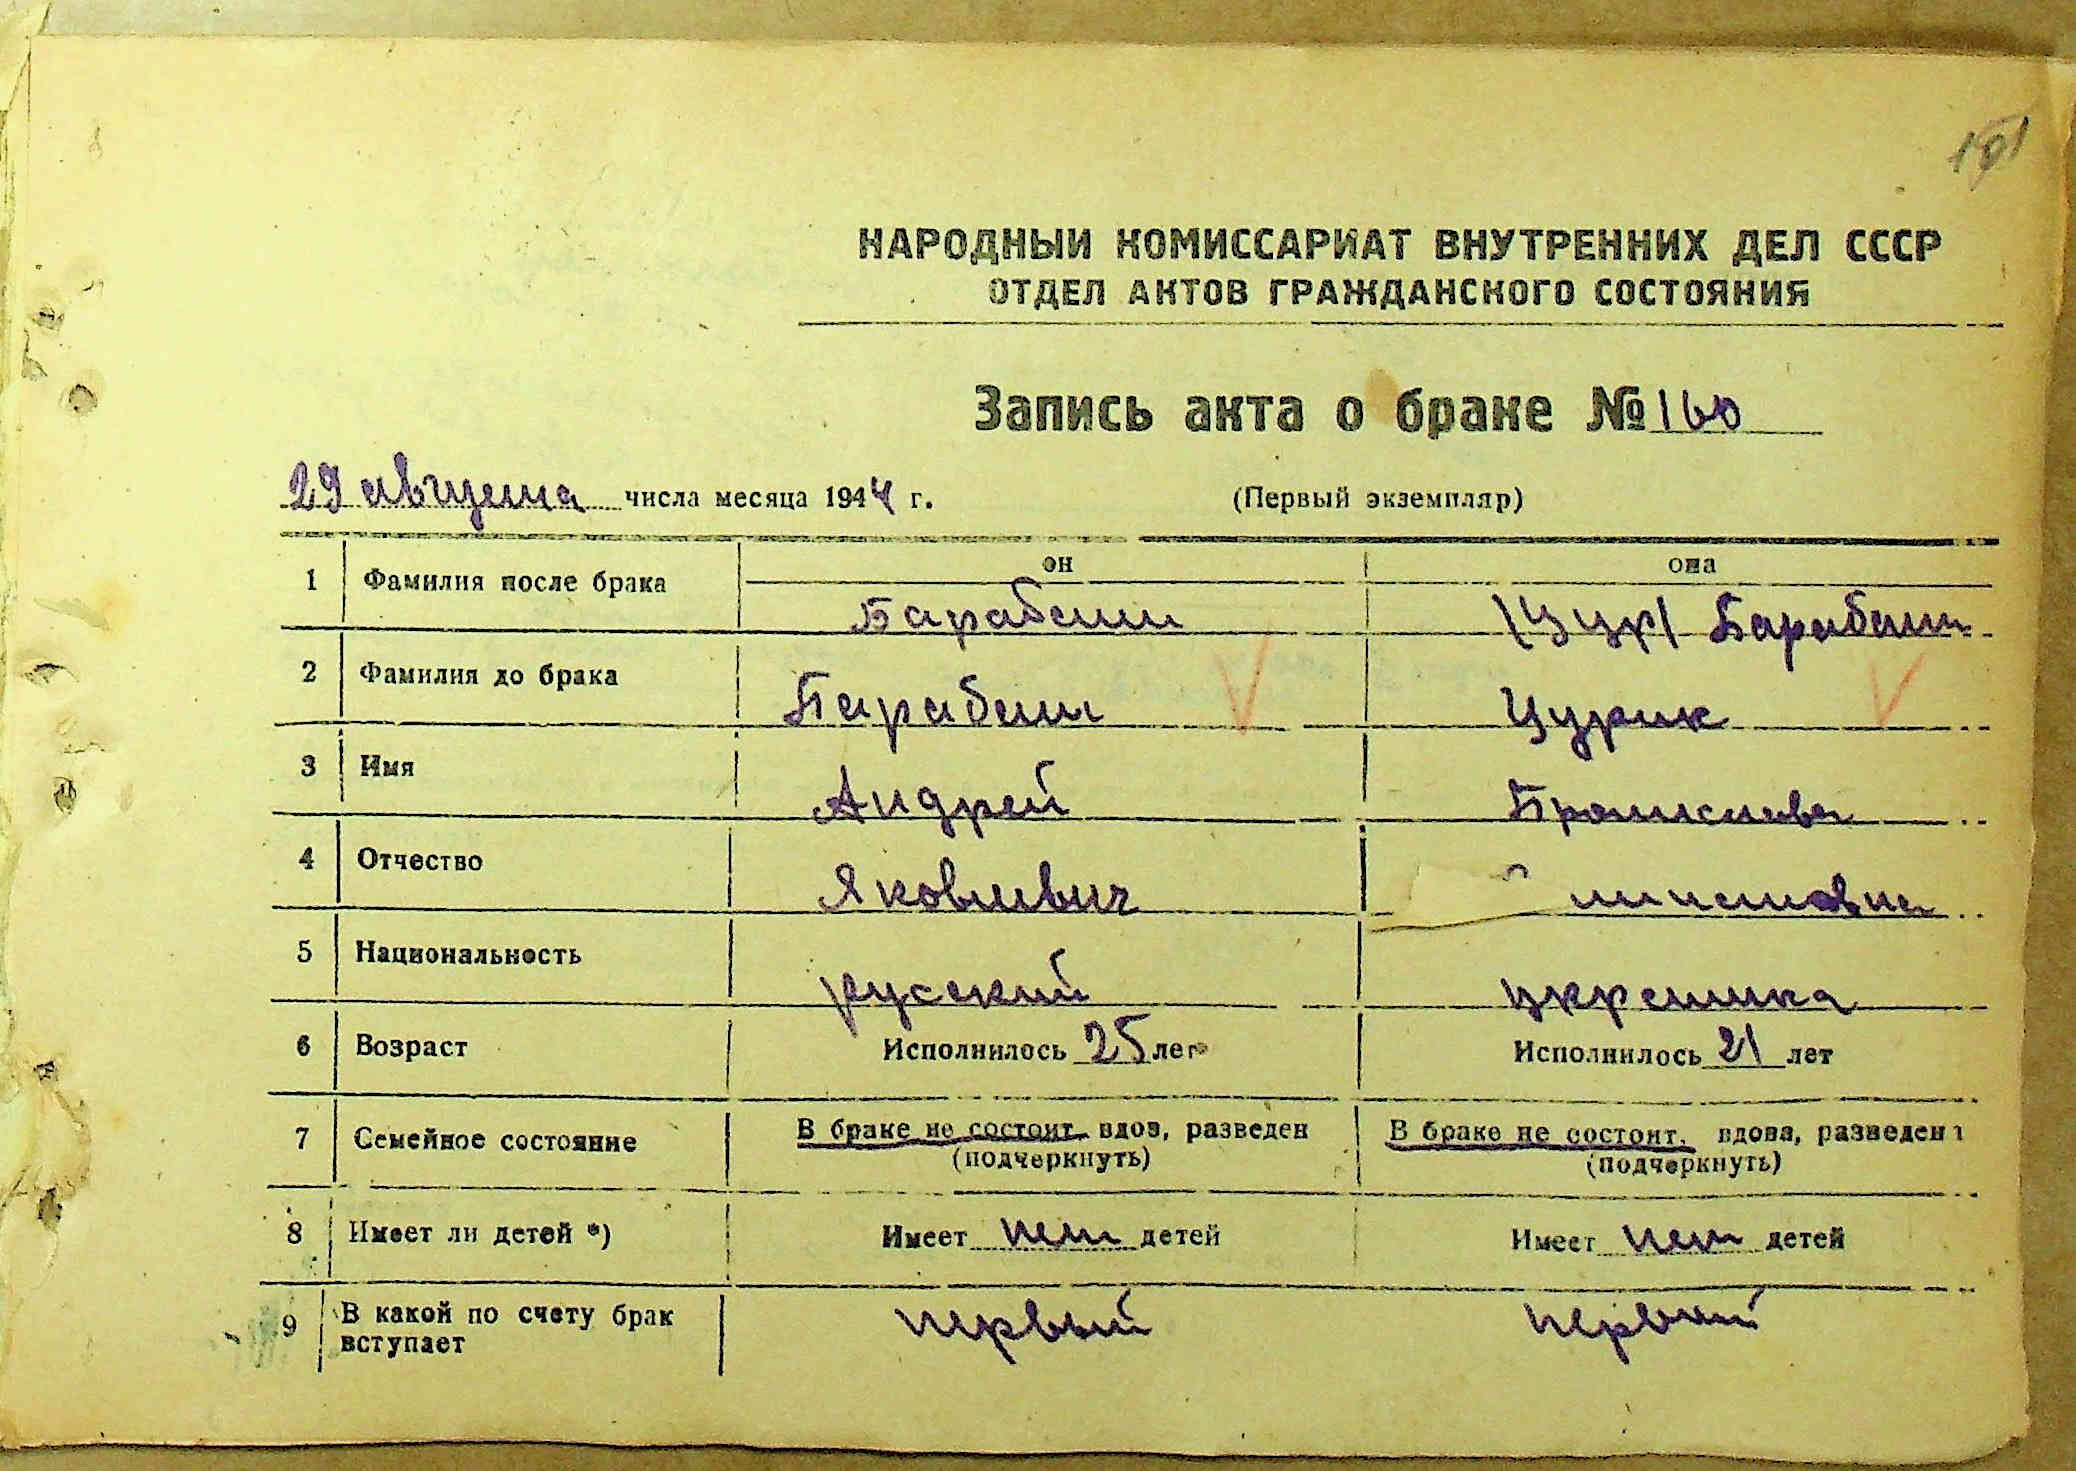 НАРОДНЫЙ КОМИССАРИАТ ВНУТРЕННИХ ДЕЛ СССР
ОТДЕЛ АКТОВ ГРАЖДАНСКОГО СОСТОЯНИЯ
Запись акта о браке № 160
29 августа числа месяца 1944 г. (Первый экземпляр)
он она
1 Фамилия после брака Барабаш (Цур) Барабаш
2 Фамилия до брака Барабаш Цурик
3 Имя Андрей
4 Отчество Яковлевич
5 Национальность русский украинка
6 Возраст Исполнилось 25 лет Исполнилось 21 лет
7 Семейное состояние В браке не состоит, вдов, разведен В браке не состоит, вдова, разведена
(подчеркнуть) (подчеркнуть)
8 Имеет ли детей *) Имеет нет детей Имеет нет детей
9 В какой по счету брак вступает первый первый